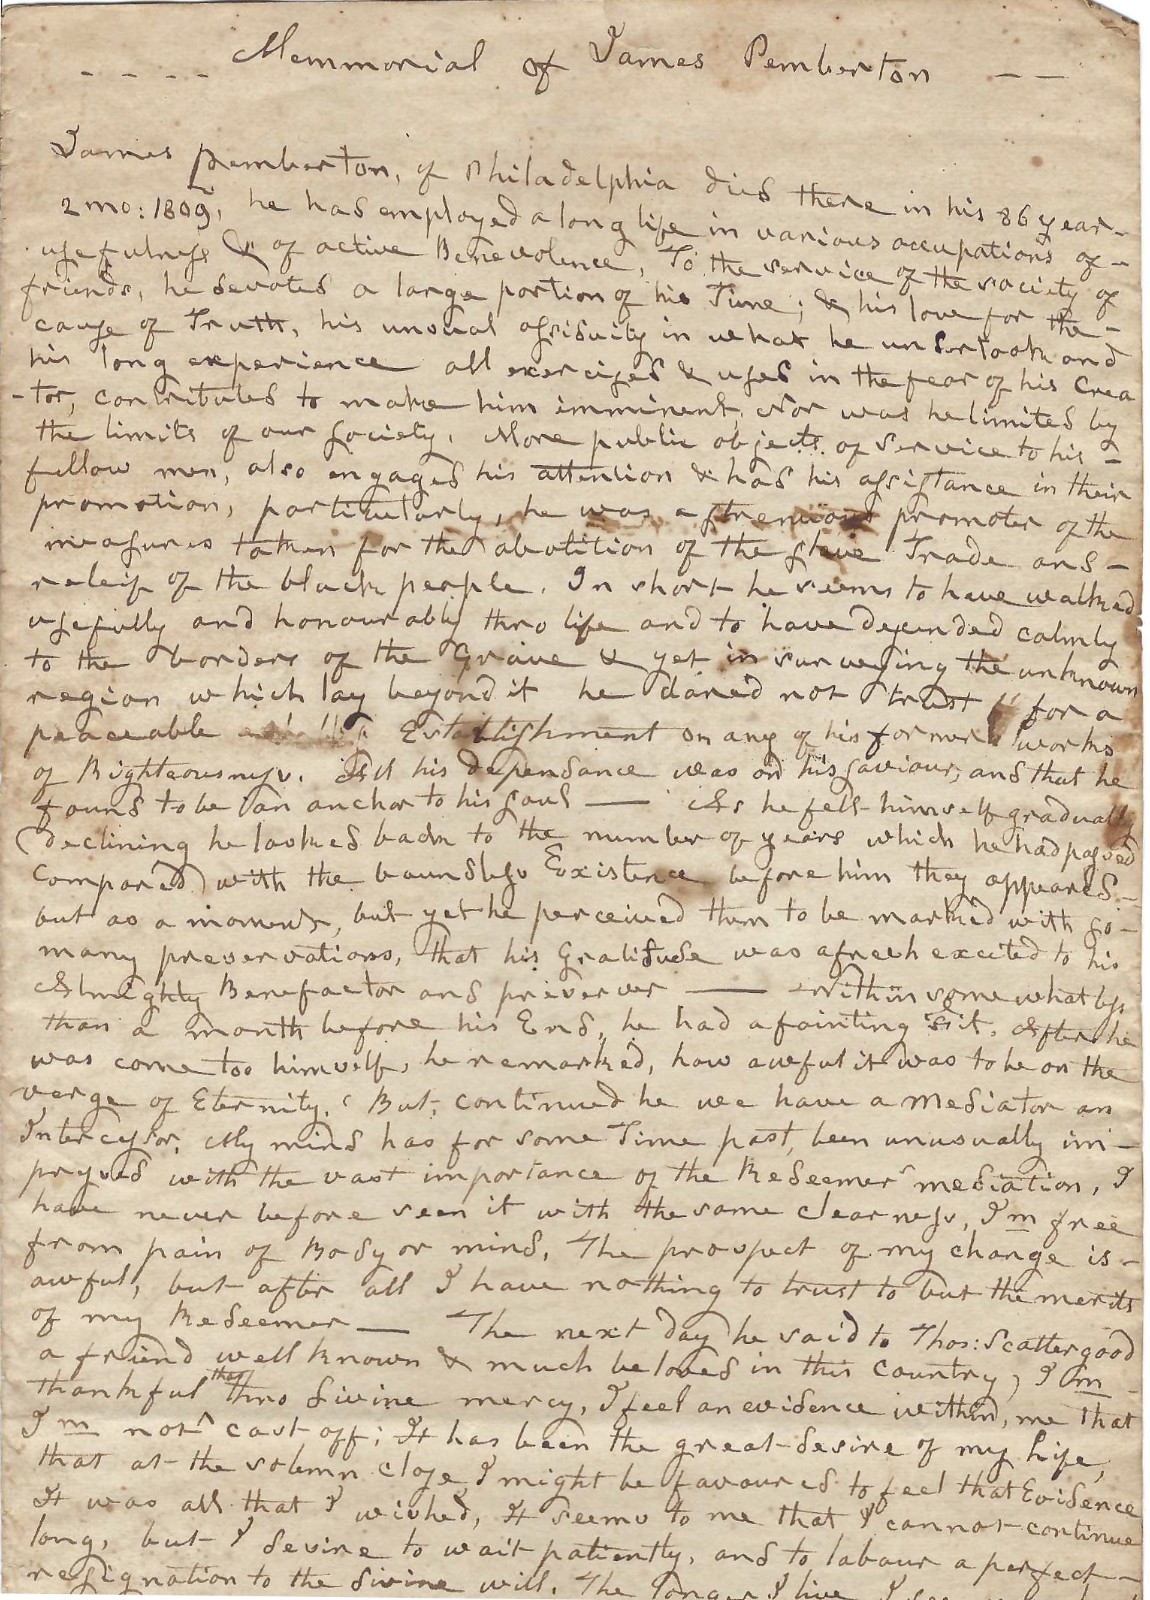 - - - - Memmorial of James Pemberton - -
James Pemberton, of Philadelphia died there in his 86 year -
2 mo: 1809, he has employed a long life in various occupations of -
usefulness & of active Benevolence, To the service of the society of
friends, he devoted a large portion of his Time; & his love for the -
cause of Truth, his unusual assiduity in what he undertook and
his long experience all exercised & used in the fear of his Crea
- tor, contributed to make him imminent, Nor was he limited by
the limits of our society. More public objects of service to his -
fellow men, also engaged his attention & had his assistance in their
promotion, particularly, he was a strenuous promoter of the
measures taken for the abolition of the slave Trade and -
releif of the black people. In short he seems to have walked
usefully and honourably thro life and to have descended calmly
to the borders of the Grave & yet in surveying the unknown
region which lay beyond it he dared not trust " for a
peaceable Establishment on any of his former works
of Righteousness. All his dependance was on his saviour, and that he
found to be an anchor to his soul — As he felt himself gradually
declining he looked back to the number of years which he had passed
(compared) with the boundless Existence before him they appeared -
but as a moment, but yet he perceived them to be marked with so -
many preservations, that his Gratitude was afresh excited to his
Almighty Benefactor and preserver — Within somewhat less
than a month before his End, he had a fainting fit. After he
was come too himself, he remarked, how awful it was to be on the
verge of Eternity. ' But, continued he we have a Mediator an
Intercessor. My mind has for some Time past, been unusually im -
pressed with the vast importance of the Redeemer's mediation, I
have never before seen it with the same clearness, I'm free
from pain of Body or mind, The prospect of my change is -
awful, but after all I have nothing to trust to but the merits
of my Redeemer — The next day he said to Thos: Scattergood
a friend well known & much beloved in this country, I am -
thankful that thro divine mercy, I feel an evidence within, me that
I'm not ^ cast off; It has been the great desire of my life,
that at the solemn close I might be favoured to feel that Evidence
It was all that I wished, It seems to me that I cannot continue
long, but I desire to wait patiently, and to labour a perfect -
resignation to the divine will. The longer I live I see